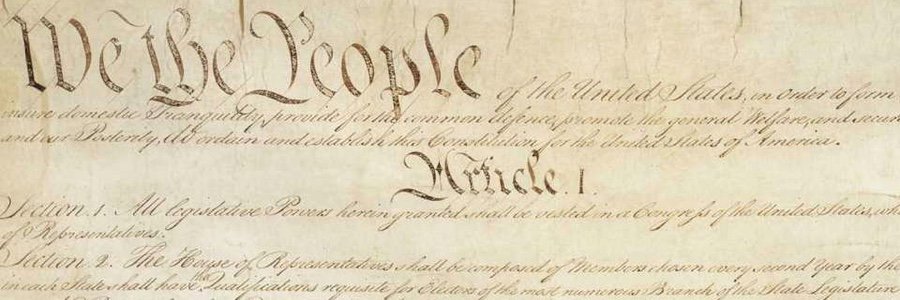 We the People of the United States, in Order to form
insure domestic Tranquility, provide for the common defence, promote the general Welfare, and secur
and our Posterity, do ordain and establish this Constitution for the United States of America.
Article. I.
Section. 1. All legislative Powers herein granted shall be vested in a Congress of the United States, wh
of Representatives.
Section. 2. The House of Representatives shall be composed of Members chosen every second Year by the
in each State shall have the Qualifications requisite for Electors of the most numerous Branch of the State Legislature